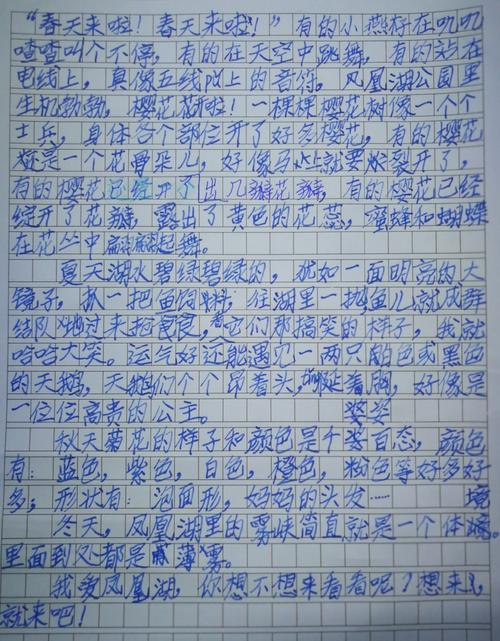 “春天来啦！春天来啦！”有的小燕子在叽叽
喳喳叫个不停，有的在天空中跳舞，有的站在
电线上，真像五线谱上的音符。凤凰湖公园里
生机勃勃，樱花开啦！一棵棵樱花树像一个个
士兵，身体各个部位开了好多樱花，有的樱花
还是一个花骨朵儿，好像马上就要炸裂开了，
有的樱花已经开了出几瓣花瓣，有的樱花已经
绽开了花瓣，露出了黄色的花蕊，蜜蜂和蝴蝶
在花丛中翩翩起舞。
夏天湖水碧绿碧绿的，犹如一面明亮的大
镜子，抓一把鱼饲料，往湖里一抛鱼儿就成群
结队地过来抢食，看它们那搞笑的样子，我就
哈哈大笑。运气好还能遇见一两只白色或黑色
的天鹅，天鹅们个个昂着头，挺着胸，好像是
一位位高贵的公主。
秋天菊花的样子和颜色是千姿百态，颜色
有：蓝色，紫色，白色，橙色，粉色等好多好
多；形状有：泡面形，妈妈的头发……
冬天，凤凰湖里的雾峡简直就是一个体
里面到处都是薄雾。
我爱凤凰湖，你想不想来看看呢？想来，
就来吧！